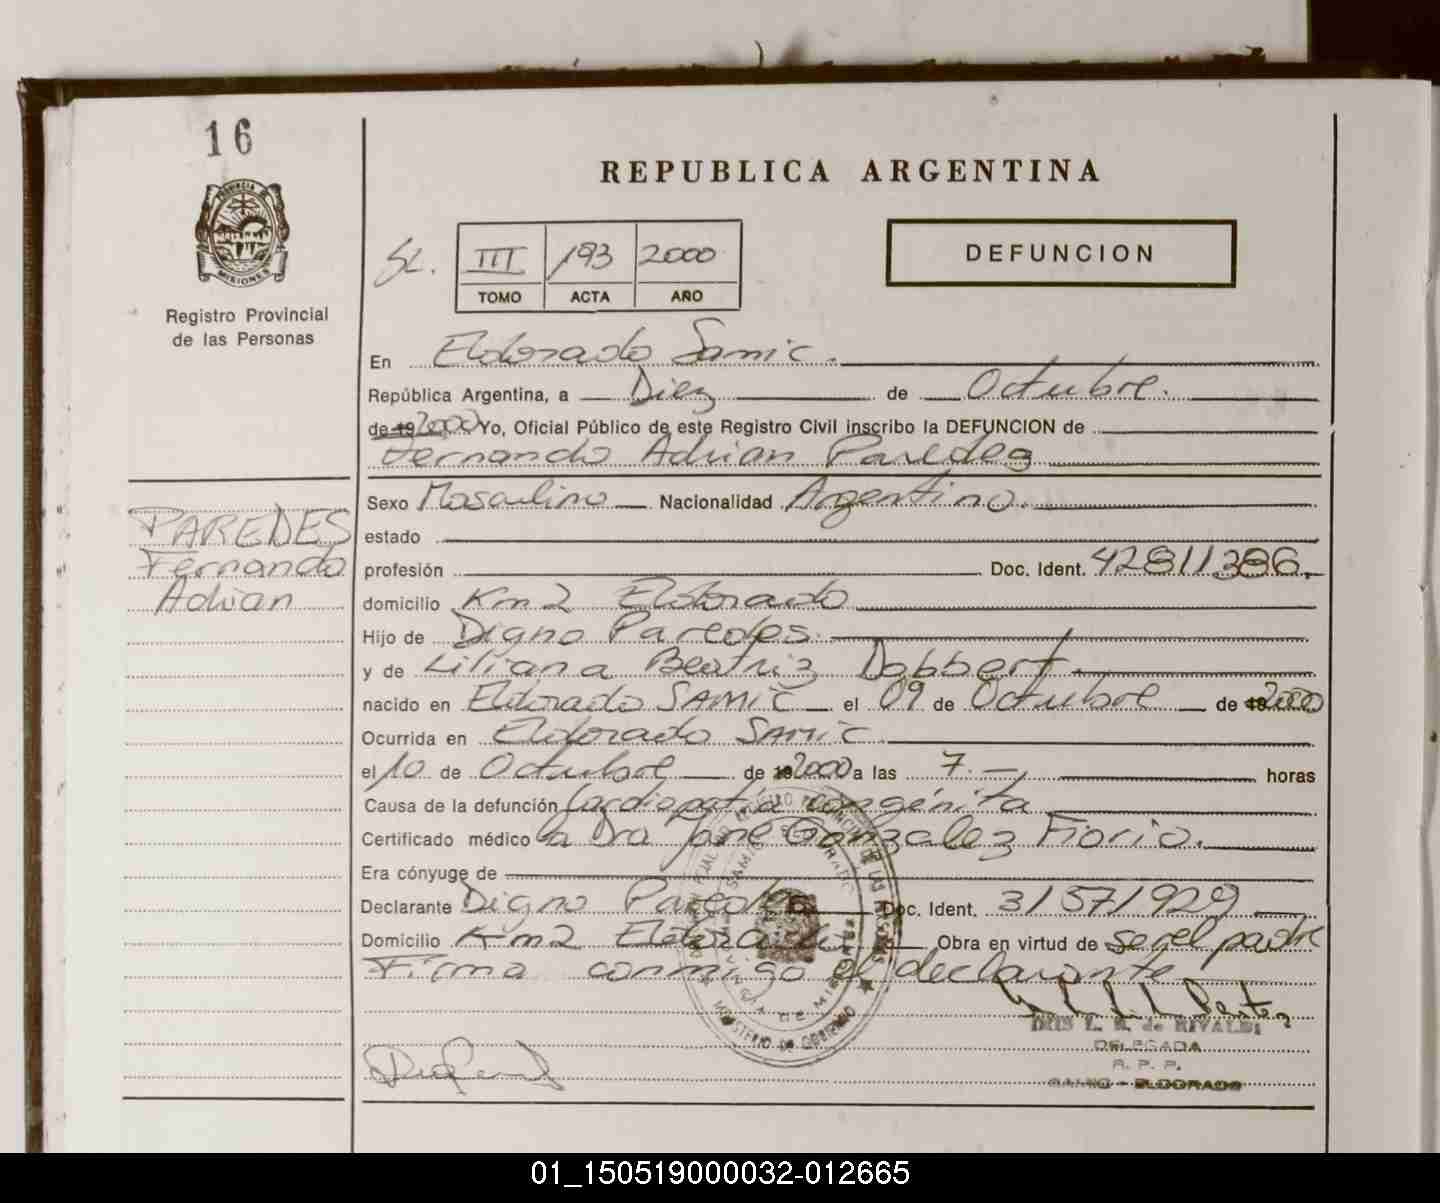 16
REPUBLICA ARGENTINA
PROVINCIA DE
MISIONES
Registro Provincial
de las Personas
SL.
III 193 2000
TOMO ACTA AÑO
DEFUNCION
En Eldorado Samic.
República Argentina, a Diez de Octubre.
de 19 2000 Yo, Oficial Público de este Registro Civil inscribo la DEFUNCION de
Fernando Adrian Paredes
PAREDES
Fernando
Adrian
Sexo Masculino Nacionalidad Argentino.
estado
profesión Doc. Ident. 42811386.
domicilio Km 2 Eldorado
Hijo de Digno Paredes.
y de Liliana Beatriz Dobbert
nacido en Eldorado SAMIC el 09 de Octubre de 19 2000
Ocurrida en Eldorado SAMIC
el 10 de Octubre de 19 2000 a las 7.- horas
Causa de la defunción Cardiopatia congénita
Certificado médico la Dra Jane Gonzalez Fiorio.
Era cónyuge de
Declarante Digno Paredes Doc. Ident. 31571929
Domicilio Km 2 Eldorado Obra en virtud de ser el padre
Firma conmigo el declarante
MINISTERIO DE GOBIERNO
IRIS L. B. de RIVALDI
DELEGADA
R. P. P.
SAMIC - ELDORADO
01_150519000032-012665